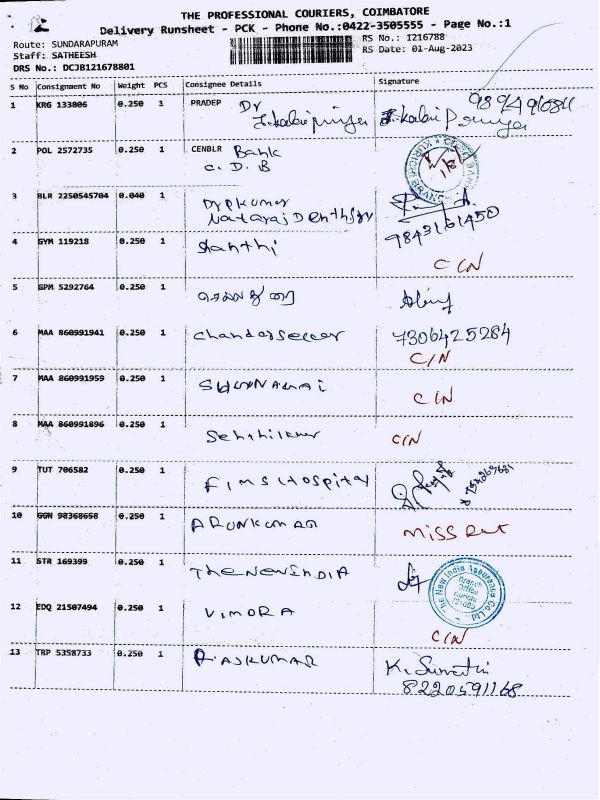 THE PROFESSIONAL COURIERS, COIMBATORE
Delivery Runsheet - PCK - Phone No.:0422-3505555 - Page No.:1
Route: SUNDARAPURAM
RS No.: 1216788
Staff: SATHEESH
RS Date: 01-Aug-2023
DRS No.: DCJB121678801
S No Consignment No Weight PCS Consignee Details Signature
1 KRG 133806 0.250 1 PRADEP Dr
2 POL 2572735 0.250 1 CENBLR Bank
C. D. B
3 BLR 2250545704 0.040 1
Nataraj
9843161450
4 GYM 119218 0.250 1 Shanthi
C/N
5 GPM 5292764 0.250 1 செல்லதுரை
6 MAA 860991941 0.250 1 chandarseccer 7306425284
C/N
7 MAA 860991959 0.250 1
C/N
8 MAA 860991896 0.250 1 C/N
9 TUT 706582 0.250 1 FIMS Hospital
10 GGN 98368658 0.250 1 ARUNKUMAR
11 STR 169399 0.250 1 The New INDIA
The New India Assurance Co. Ltd.
Branch
Office
12 EDQ 21507494 0.250 1 VIMORA
C/N
13 TRP 5358733 0.250 1 RAJKUMAR K. Sumathi
8220591168